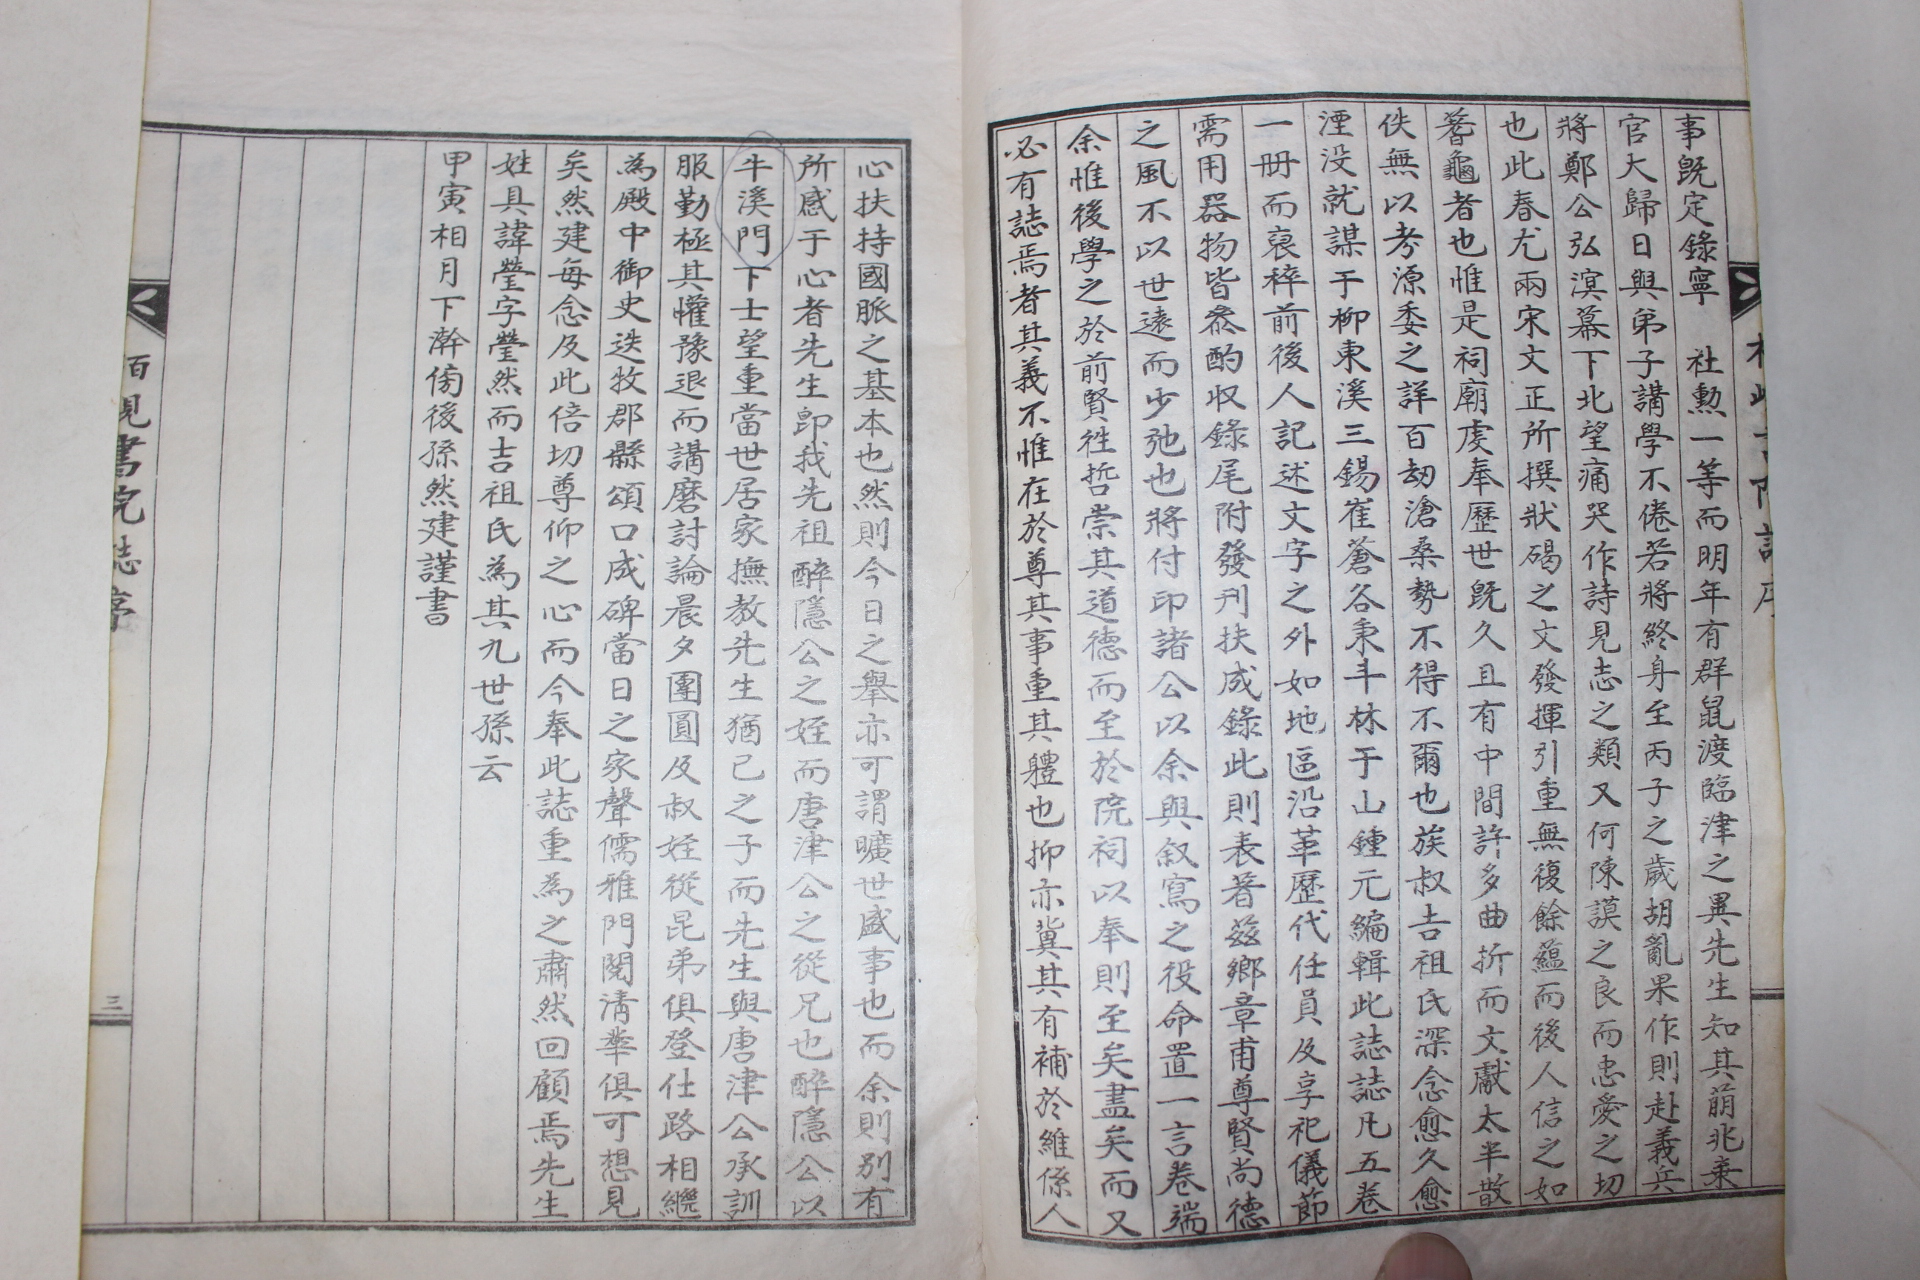 事旣定錄寧 社勳一等而明年有群鼠渡臨津之異先生知其萠兆乗
官大歸日與弟子講學不倦若將終身至丙子之歲胡亂果作則赴義兵
將鄭公弘溟幕下北望痛哭作詩見志之類又何陳謨之良而忠愛之切
也此春尤兩宋文正所撰狀碣之文發揮引重無復餘蘊而後人信之如
蓍龜者也惟是祠廟虔奉歷世旣久且有中間許多曲折而文獻太半散
佚無以考源委之詳百刼滄桑勢不得不爾也族叔吉祖氏深念愈久愈
湮没就謀于柳東溪三錫崔蒼谷秉斗林于山鍾元編輯此誌誌凡五卷
一册而裒稡前後人記述文字之外如地區沿革歷代任員及享祀儀節
需用器物皆叅酌収錄尾附發刋扶成錄此則表著玆鄉章甫尊賢尚德
之風不以世遠而少弛也將付印諸公以余與叙寫之役命置一言卷端
余惟後學之於前賢徃哲崇其道德而至於院祠以奉則至矣盡矣而又
必有誌焉者其義不惟在於尊其事重其軆也抑亦冀其有補於維係人
心扶持國脈之基本也然則今日之擧亦可謂曠世盛事也而余則別有
所感于心者先生卽我先祖醉隱公之姪而唐津公之從兄也醉隱公以
牛溪門下士望重當世居家撫教先生猶己之子而先生與唐津公承訓
服勤極其懽豫退而講磨討論晨夕團圓及叔姪從昆弟俱登仕路相繼
為殿中御史迭牧郡縣頌口成碑當日之家聲儒雅門閥淸華俱可想見
矣然建每念及此倍切尊仰之心而今奉此誌重為之肅然回顧焉先生
姓具諱瑩字瑩然而吉祖氏為其九世孫云
甲寅相月下澣傍後孫然建謹書
書院誌序
三